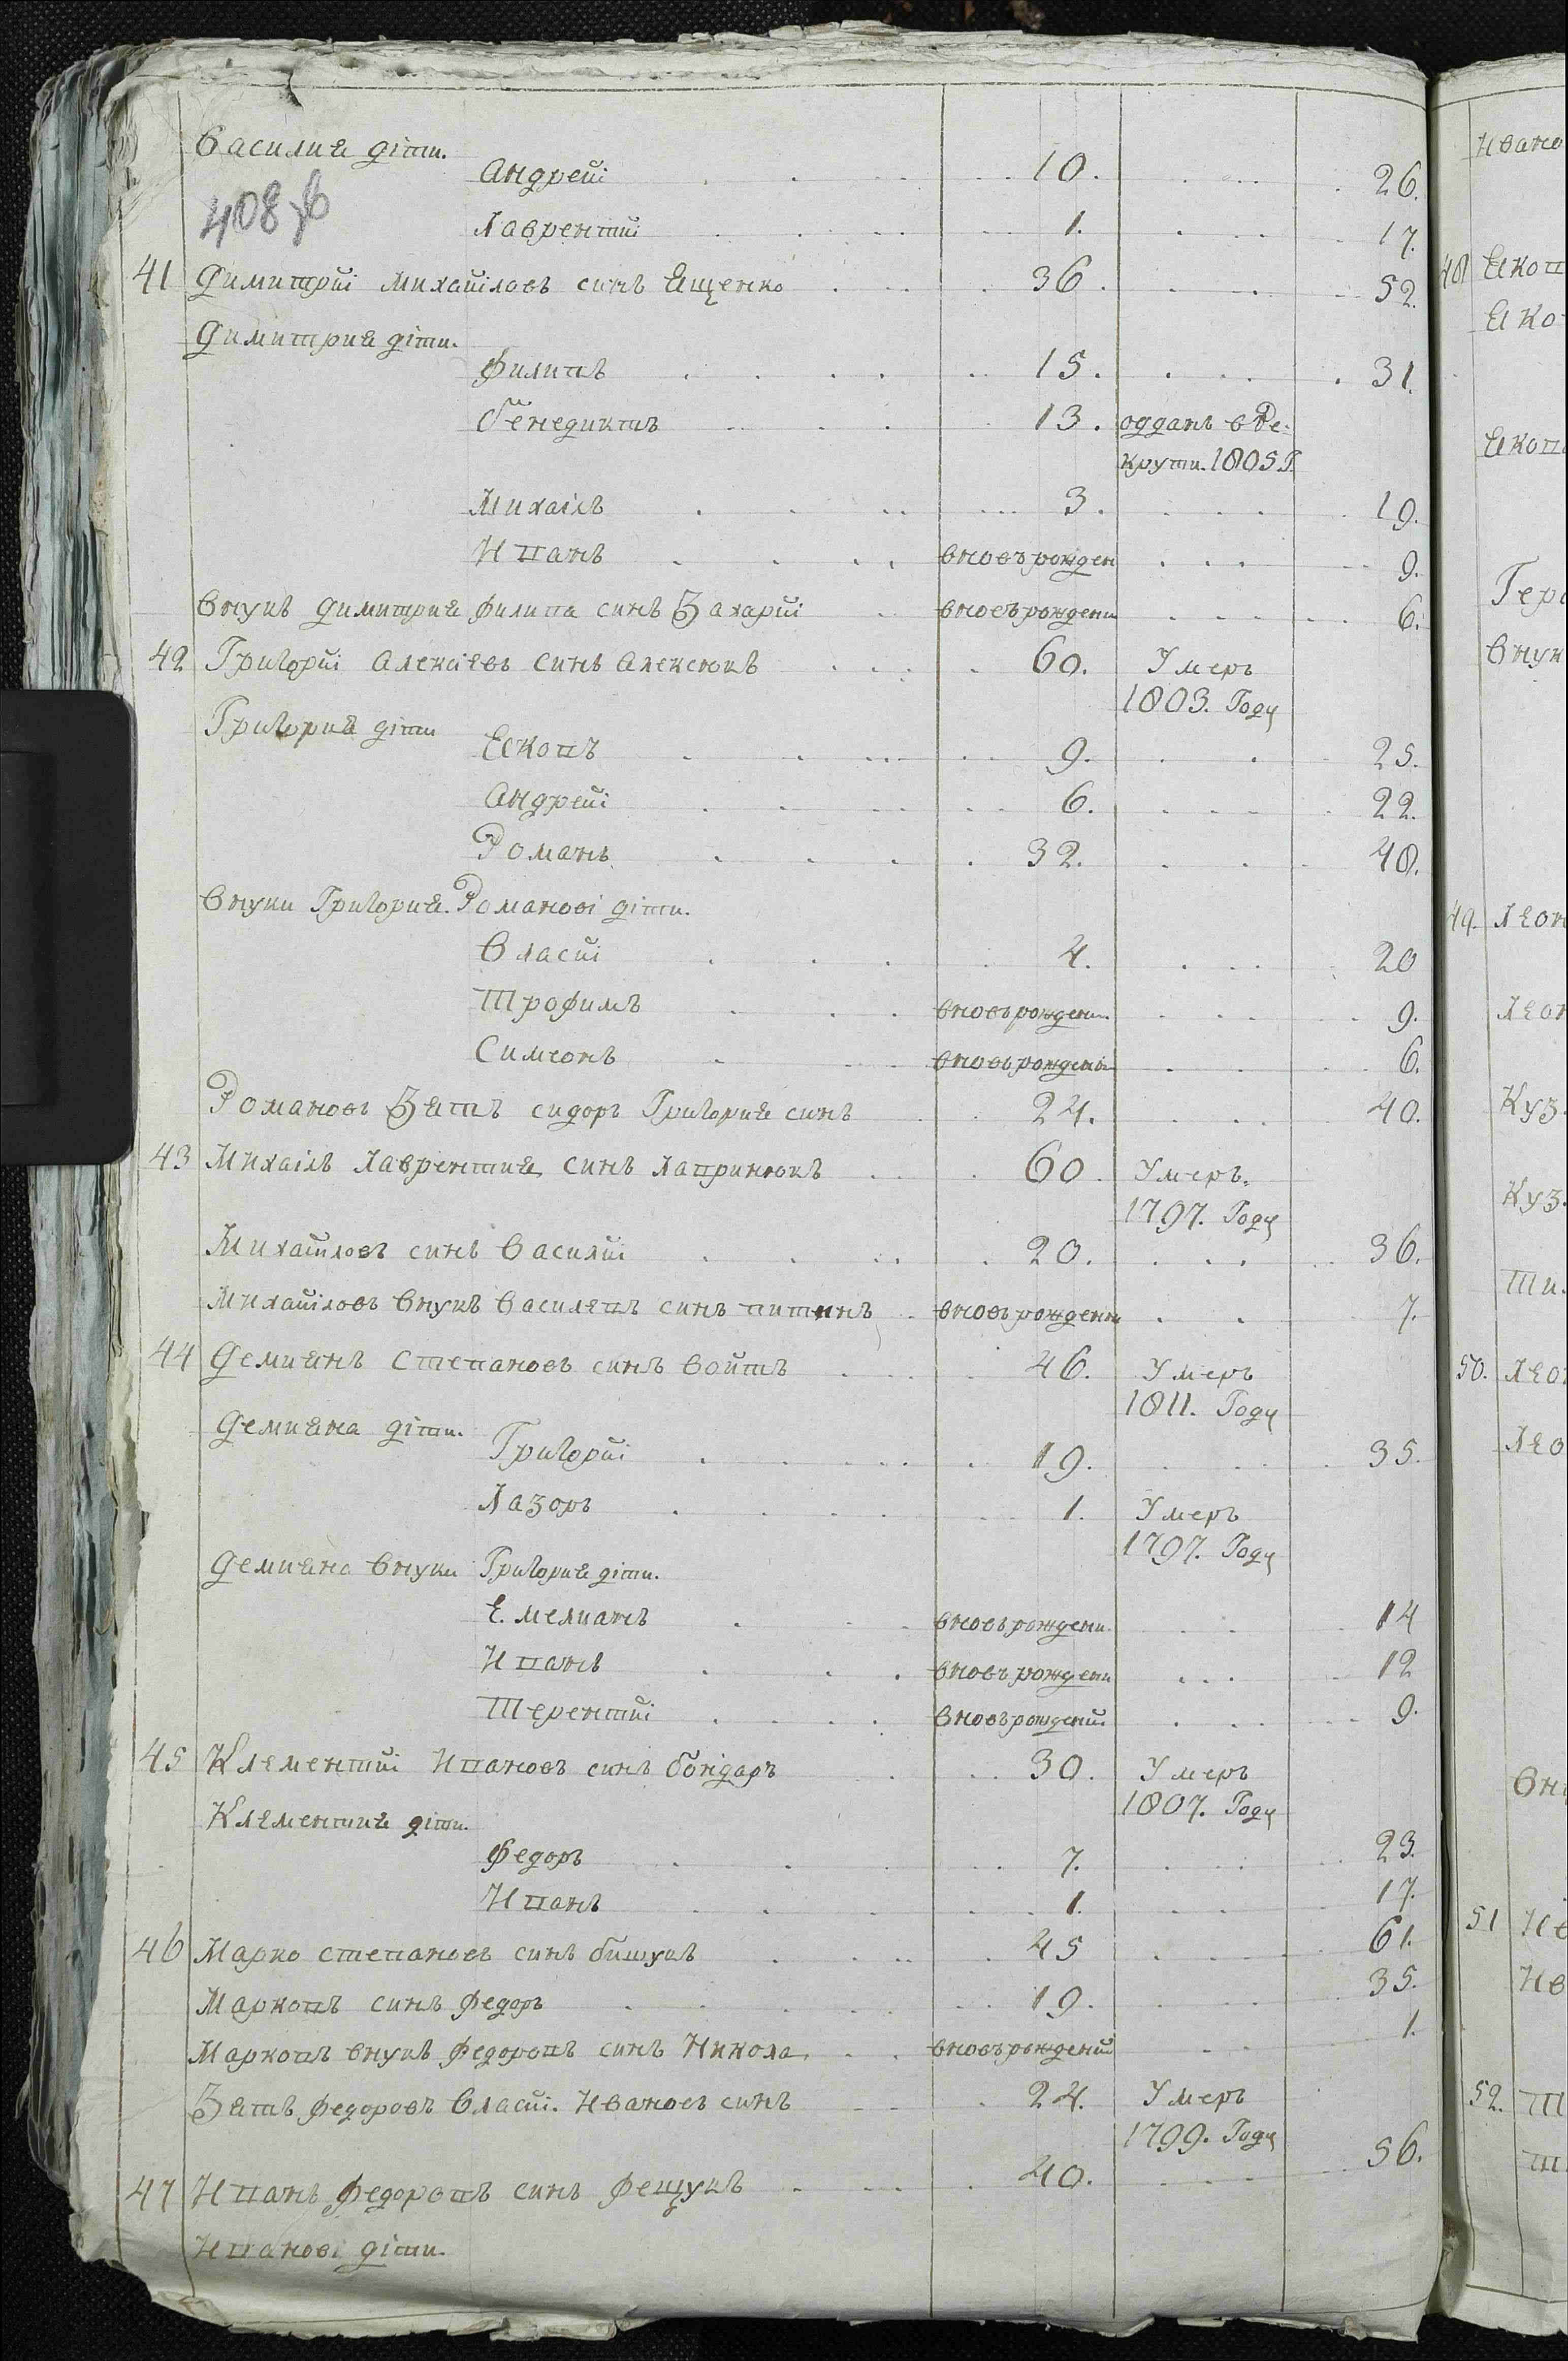 Василия діти.
Андрей 10. 26.
408 об
Лаврентий 1. 17.
41 Димитрий Михайловъ синъ Ященко 36. 52.
Димитрия діти.
Филипъ 15. 31.
Бенедиктъ 13. отданъ в Ре-
крути. 1805 Г
Михаілъ 3. 19.
Иванъ вновърожден 9.
Внукъ Димитрия Филипа синъ Захарий вновърождени 6.
42 Григорий Алексіевъ синъ Алексюкъ 60. Умеръ
1803. Году
Григория діти
Якопъ 9. 25.
Андрей 6. 22.
Романъ 32. 48.
Внуки Григория. Романові діти.
Власий 4. 20
Трофимъ вновърождени. 9.
Симеонъ вновърождени 6.
Романовъ Зять сидоръ Григория синъ 24. 40.
43 Михаілъ Лаврентия синъ Лавринюкъ 60. Умеръ.
1797. Году
Михайловъ синъ Василий 20. 36.
Михайловъ Внукъ Василевъ синъ вновърождени 7.
44 Демиянъ Степановъ синъ Войтъ 46. Умеръ
1811. Году
Демияна діти.
Григорий 19. 35.
Лазоръ 1. Умеръ
1797. Году
Демияна Внуки Григория діти.
Емелианъ вновърождени. 14
Иванъ вновърождени 12
Терентий вновърождений 9.
45 Клементий Ивановъ синъ бондаръ 30. Умеръ
1807. Году
Клементия діти.
Федоръ 7. 23.
Иванъ 1. 17.
46 Марко Степановъ синъ бишукъ 45 61.
Марковъ синъ Федоръ 19. 35.
Марковъ внукъ Федоровъ синъ Никола. вновърождений 1.
Зять Федоровъ Власий. Ивановъ синъ 24. Умеръ
1799. Году
47 Иванъ Федоровъ синъ Фещукъ 40. 56.
Иванові діти.
Ивано
48
Якоп
Яко
Якоп
Геро
Внук
49. Леон
Леон
Куз.
Куз.
Ти.
50. Лео
Лео
Вн
51 Ив
Ив
52. Т
Т